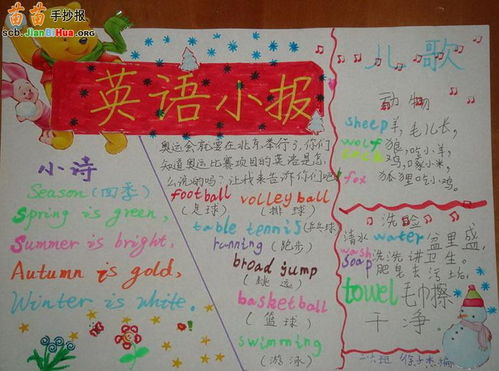 苗苗手抄报
scb.JianBiHua.org
英语小报
小诗
Season(四季)
Spring is green,
Summer is bright,
Autumn is gold,
Winter is white.
奥运会就要在北京举行了,你们
知道奥运比赛项目的英语是怎
么说的吗?让我来告诉你们吧!
football
(足球)
volleyball
(排球)
table tennis(乒乓球)
running(跑步)
broad jump
(跳远)
basketball
(篮球)
swimming
(游泳)
儿歌
动物
sheep羊,毛儿长,
wolf狼,吃小羊,
鸡,啄小米,
fox 狐狸吃小鸡。
洗脸
清水water盆里盛,
wash洗洗讲卫生。
soap肥皂去污垢,
towel毛巾擦
干净。